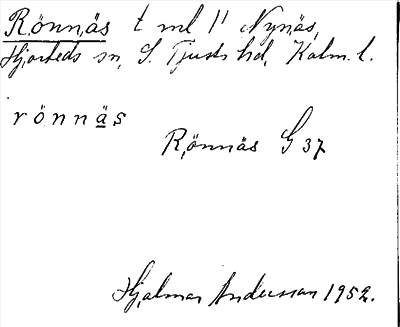 Rönnäs t ml 1¹ Nynäs,
Hjorteds sn, S. Tjusts hd, Kalm. l.
rönnäs
Rönnäs G 37
Hjalmar Andersson 1952.